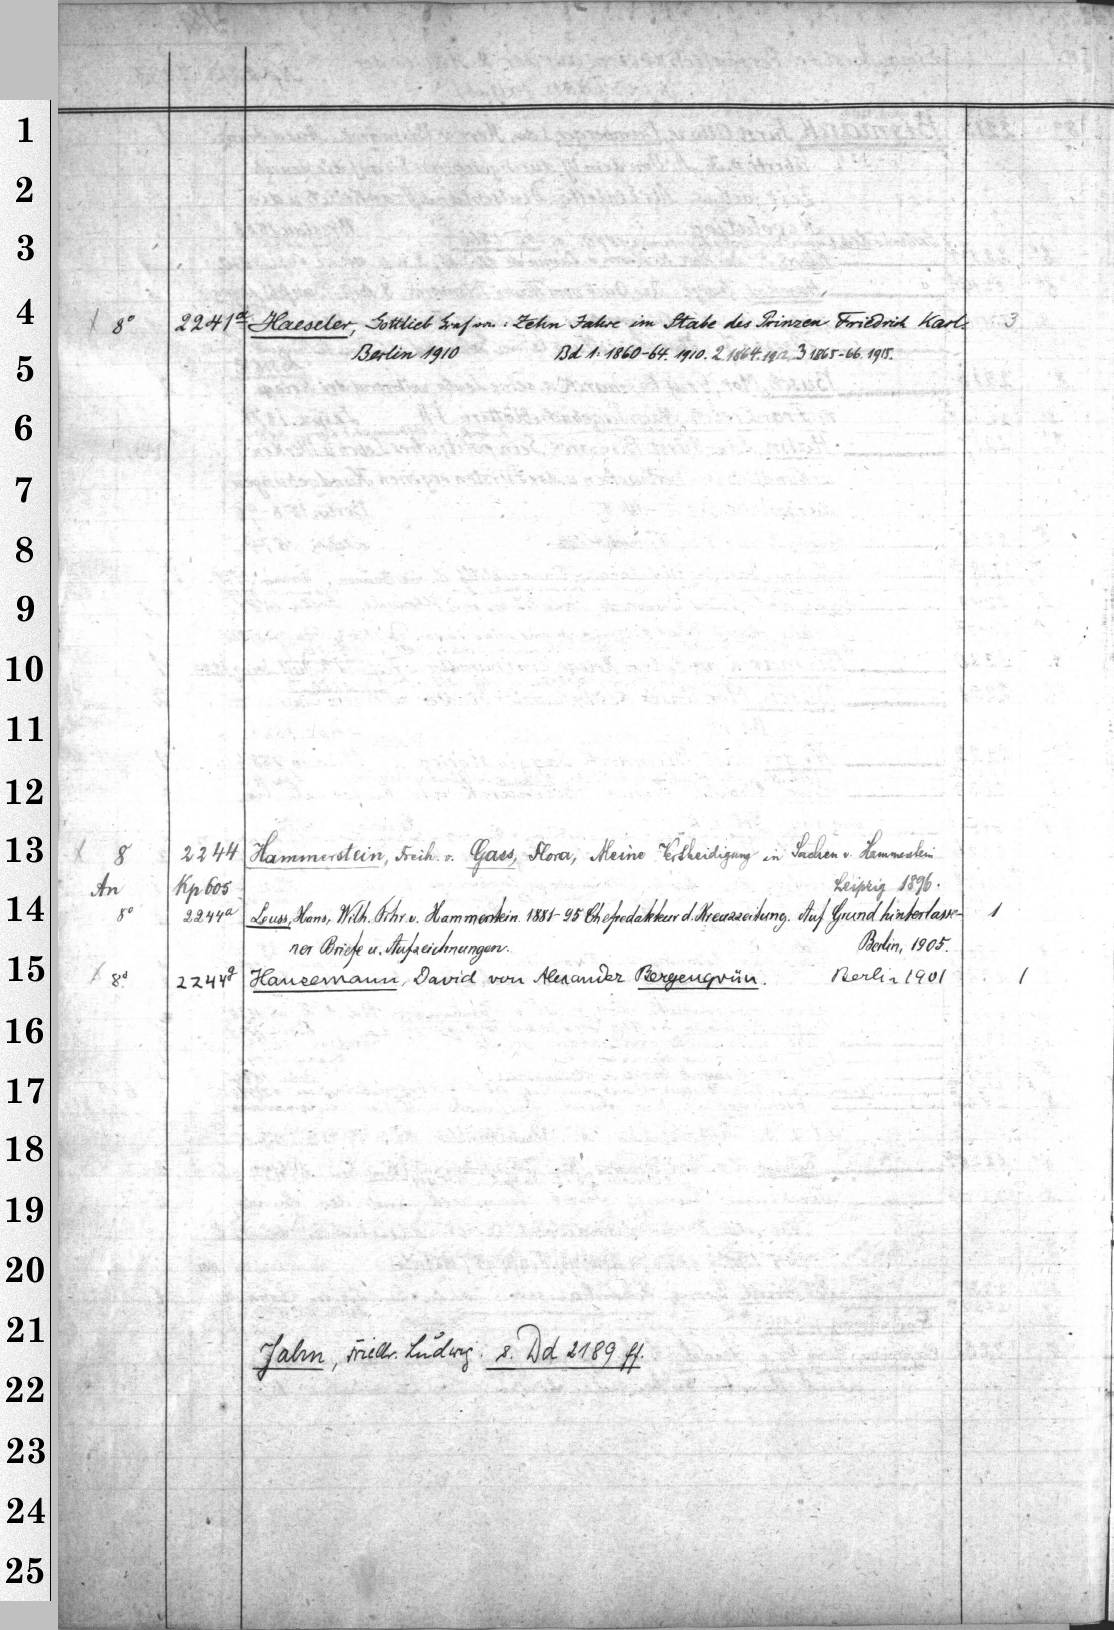 1
2
3
4
8° 2241a Haeseler, Gottlieb Graf von: Zehn Jahre im Stabe des Prinzen Friedrich Karl. 3
Berlin 1910 Bd 1: 1860-64. 1910. 2 1864. 1912, 3 1865-66. 1915.
5
6
7
8
9
10
11
12
13
8 2244 Hammerstein, Freih. v. Gass, Flora, Meine Vertheidigung in Sachen v. Hammerstein
Leipzig 1896.
An Kp 605
14
8° 2244a Leuss, Hans, Wilh. Frhr. v. Hammerstein. 1881-95 Chefredakteur d. Kreuzzeitung. Auf Grund hinterlasse- 1
ner Briefe u. Aufzeichnungen. Berlin, 1905.
15
8° 2244g Hansemann, David von Alexander Bergengrün. Berlin 1901 1
16
17
18
19
20
21
Jahn, Friedr. Ludwig. s. Dd 2189 ff.
22
23
24
25